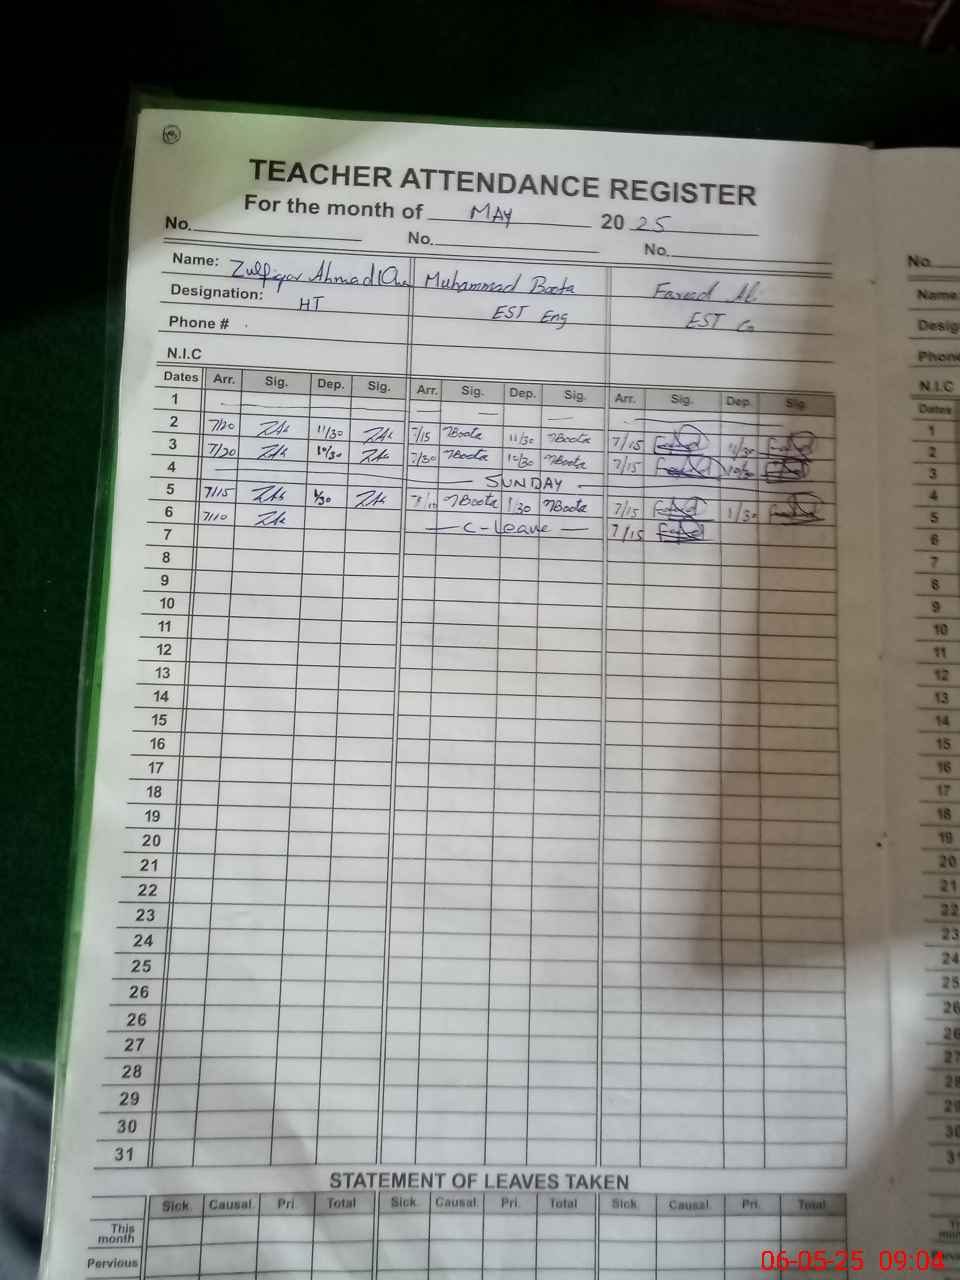 TEACHER ATTENDANCE REGISTER
For the month of MAY 2025
No. No. No.
Name: Zulfiqar Ahmad Muhammad Boota Fareed Ali
Designation: HT EST Eng EST G
Phone #
N.I.C
Dates Arr. Sig. Dep. Sig. Arr. Sig. Dep. Sig. Arr. Sig. Dep. Sig.
1
2 7/20 11/30 7/15 Boota 11/30 Boota 7/15 11/30
3 7/20 10/30 7/30 Boota 10/30 Boota 7/15 10/30
4 SUNDAY
5 7/15 1/30 Boota 1/30 Boota 7/15 1/30
6 7/10 C-Leave 7/15
7
8
9
10
11
12
13
14
15
16
17
18
19
20
21
22
23
24
25
26
26
27
28
29
30
31
STATEMENT OF LEAVES TAKEN
Sick. Causal. Pri. Total Sick. Causal. Pri. Total Sick. Causal. Pri. Total
This month
Pervious
No.
Name:
N.I.C
Dates
1
2
3
4
5
6
7
8
9
10
11
12
13
14
15
16
17
18
19
20
21
22
23
24
25
26
26
27
28
29
30
06-05-25 09:04